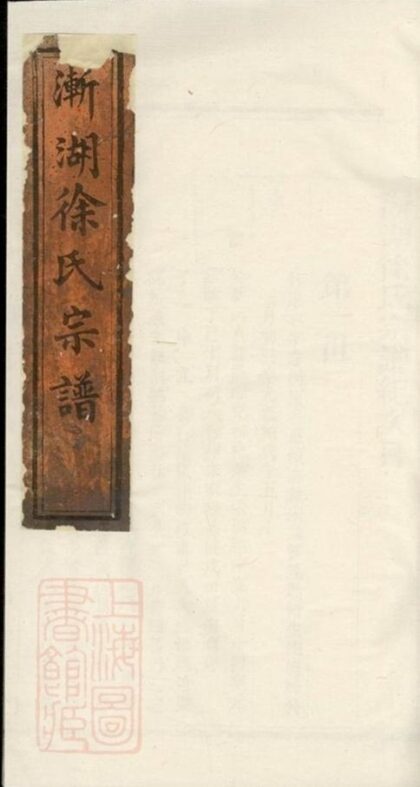 漸湖徐氏宗譜
上海圖
書館藏